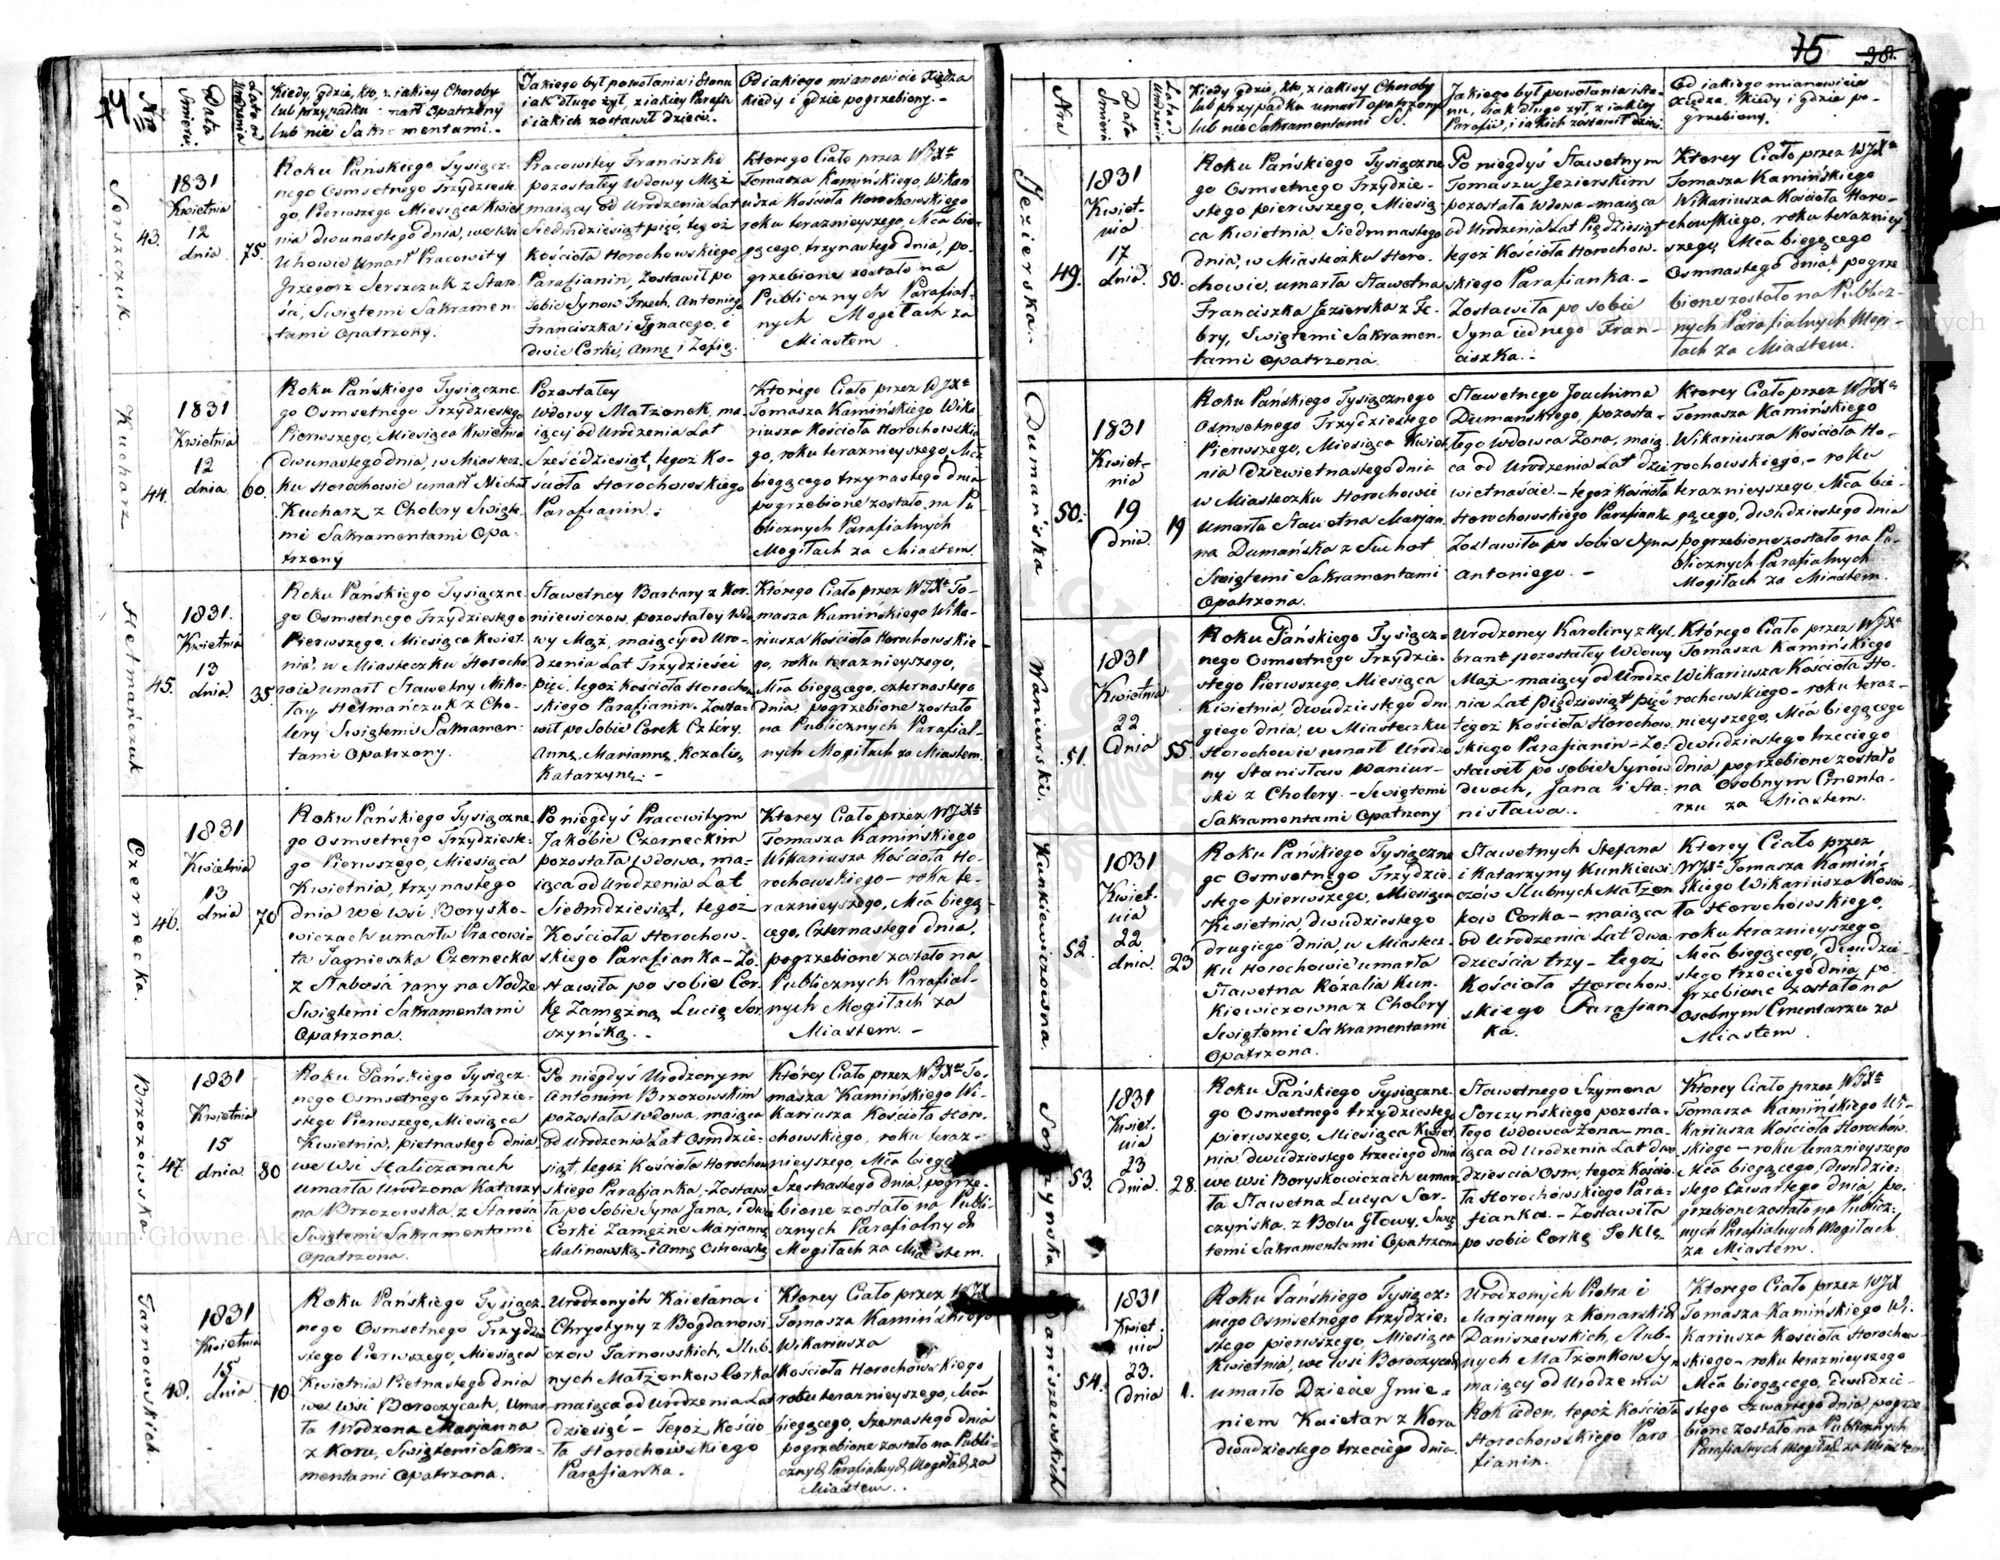 74
Nra
Data Smierci
Lata od Urodzenia
Kiedy, gdzie, kto, z iakiey Choroby
lub przypadku umarł Opatrzony
lub nie Sakramentami.
Jakiego był powołania i Stanu
iak długo żył, z iakiey Parafii
i iakich zostawił dzieci.
Od iakiego mianowicie Xiędza
kiedy i gdzie pogrzebiony.
Serszczuk.
43.
1831
Kwietnia
12
dnia
75.
Roku Pańskiego Tysiącz-
nego Osmsetnego Trzydzieste-
go Pierwszego Miesiąca Kwiet
nia dwunastego dnia, we Wsi
Uhowie Umarł Pracowity
Grzegorz Serszczuk z Staro
ści, Swiętemi Sakramen-
tami Opatrzony.
Pracowitey Franciszki
pozostałey Wdowy Mąż
maiący od Urodzenia Lat
Siedmdziesiąt pięć, tegoż
Kościoła Horochowskiego
Parafianin, Zostawił po
Sobie Synow Trzech, Antoniego
Franciszka i Ignacego, i
dwie Corki, Annę i Zofię.
Ktorego Ciało przez WJXa
Tomasza Kamińskiego, Wikar
iusza Kościoła Horochowskiego
roku teraznieyszego, Mca bie-
gącego, trzynastego dnia, po-
grzebione zostało na
Publicznych Parafial-
nych Mogiłach za
Miastem
Kucharz
44.
1831
Kwietnia
12
dnia
60.
Roku Pańskiego Tysiączne
go Osmsetnego Trzydziestego
Pierwszego, Miesiąca Kwietnia
dwunastego dnia, w Miastecz-
ku Horochowie umarł Michał
Kucharz z Cholery Swięte-
mi Sakramentami Opa-
trzony
Pozostałey
Wdowy Małżonek, ma
iący od Urodzenia Lat
Sześćdziesiąt, tegoż Ko-
ścioła Horochowskiego
Parafianin.
Ktorego Ciało przez WJXa
Tomasza Kamińskiego Wika-
riusza Kościoła Horochowskie
go, roku teraznieyszego, Mca
biegącego trzynastego dnia
pogrzebione zostało, na Pu-
blicznych Parafialnych
Mogiłach za Miastem
Hetmańczuk
45.
1831.
Kwietnia
13
dnia.
35.
Roku Pańskiego Tysiączne
go Osmsetnego Trzydziestego
Pierwszego, Miesiąca Kwiet-
nia, w Miasteczku Horocho
wie umarł Sławetny Miko-
łay Hetmańczuk z Cho-
lery Swiętemi Sakramen-
tami Opatrzony.
Sławetney Barbary z Kor-
niiewiczow, pozostałey Wdo
wy Mąż, maiący od Uro-
dzenia Lat Trzydzieści
pięć, tegoż Kościoła Horocho
wskiego Parafianin. Zosta-
wił po Sobie Corek Cztery,
Annę, Mariannę, Rozalię,
Katarzynę. -
Którego Ciało przez WJXa To-
masza Kamińskiego Wika-
riusza Kościoła Horochowskie-
go, roku teraznieyszego,
Mca biegącego, czternastego
dnia, pogrzebione zostało
na Publicznych Parafial-
nych Mogiłach za Miastem.
Czernecka.
46.
1831
Kwietnia
13
dnia
70
Roku Pańskiego Tysiączne
go Osmsetnego Trzydzieste-
go Pierwszego, Miesiąca
Kwietnia, trzynastego
dnia we Wsi Borysko-
wiczach umarła Pracowi-
ta Jagnieszka Czernecka
z Słabości rany na Nodze
Swiętemi Sakramentami
Opatrzona.
Po niegdyś Pracowitym
Jakóbie Czerneckim
pozostała Wdowa, ma-
iąca od Urodzenia Lat
Siedmdziesiąt, tegoż
Kościoła Horochow-
skiego Parafianka - Zo-
stawiła po sobie Cor-
kę Zamężną Lucię Sor
czyńską. -
Ktorey Ciało przez WJXa
Tomasza Kamińskiego
Wikariusza Kościoła Ho-
rochowskiego - roku te-
raznieyszego, Mca biegą-
cego, Czternastego dnia,
pogrzebione zostało na
Publicznych Parafial-
nych Mogiłach za
Miastem. -
Brzozowska
47
1831
Kwietnia
15
dnia
80
Roku Pańskiego Tysiącz-
nego Osmsetnego Trzydzie-
stego Pierwszego, Miesiąca
Kwietnia, pietnastego dnia
we Wsi Haliczanach
umarła Urodzona Katarzy
na Brzozowska, z Starosci
Swiętemi Sakramentami
Opatrzona.
Po niegdyś Urodzonym
Antonim Brzozowskim
pozostała Wdowa, maiąca
od Urodzenia Lat Osmdzie-
siąt, tegoż Kościoła Horochow
skiego Parafianka, - Zostawi
ła po Sobie Syna Jana, i dwie
Corki Zamężne Mariannę
Malinowską, i Annę Ostrowską
Którey Ciało przez WJXa To-
masza Kamińskiego Wi-
kariusza Kościoła Hor-
chowskiego, roku teraz-
nieyszego, Mca biegą
Szesnastego dnia, pogrze-
bione zostało na Publi-
cznych Parafialnych
Mogiłach za Miastem.
Tarnowskich.
48.
1831
Kwietnia
15
dnia
10
Roku Pańskiego Tysiącz-
nego Osmsetnego Trzydzie
stego Pierwszego, Miesiąca
Kwietnia Pietnastego dnia
we Wsi Boroczycach, Umar
ła Urodzona Marjanna
z Koru, Swiętemi Sakra-
mentami Opatrzona.
Urodzonych Kaietana i
Chrystyny z Bogdanowi
czow Tarnowskich, Slub-
nych Małżonkow Corka
maiąca od Urodzenia Lat
dziesięć - Tegoż Kościo
ła Horochowskiego
Parafianka.
Ktorey Ciało przez WJX
Tomasza Kamińskiego
Wikariusza
Kościoła Horochowskiego
roku teraznieyszego, Mca
biegącego, Szesnastego dnia
pogrzebione zostało na Publi-
cznych Parafialnych Mogiłach za
Miastem.
75 38.
Nra
Data Smierci
Lata od Urodzenia
Kiedy gdzie, kto, z iakiey Choroby
lub przypadku umarł opatrzony
lub nie Sakramentami S.
Jakiego był powołania i sta-
nu, iak długo żył, z iakiey
Parafii, i iakich zostawił dzieci.
Od iakiego mianowicie
Xiędza, Kiedy i gdzie po-
grzebiony.
Jezierska.
49.
1831
Kwiet-
nia
17
dnia.
50.
Roku Pańskiego Tysiączne
go Osmsetnego Trzydzie-
stego pierwszego, Miesią
ca Kwietnia, Siedmnastego
dnia, w Miasteczku Horo-
chowie, umarła Sławetna
Franciszka Jezierska z Fe-
bry, Swiętemi Sakramen-
tami opatrzona.
Po niegdyś Sławetnym
Tomaszu Jezierskim
pozostała Wdowa - maiąca
od Urodzenia Lat Pięćdziesiąt
tegoż Kościoła Horochow-
skiego Parafianka. -
Zostawiła po sobie
Syna iednego Fran-
ciszka.
Ktorey Ciało przez WJXa
Tomasza Kamińskiego
Wikariusza Kościoła Horo-
chowskiego, roku teraznie-
szego, Mca biegącego
Osmnastego dnia, pogrze
bione zostało na Publicz-
nych Parafialnych Mogi
łach za Miastem.
Dumańska
50.
1831
Kwiet-
nia
19
Dnia
19
Roku Pańskiego Tysiącznego
Osmsetnego Trzydziestego
Pierwszego, Miesiąca Kwiet
nia dziewietnastego dnia
w Miasteczku Horochowie
Umarła Sławetna Marjan
na Dumańska z Suchot
Swiętemi Sakramentami
Opatrzona.
Sławetnego Joachima
Dumańskiego, pozosta-
łego Wdowca Zona, maią
ca od Urodzenia Lat dzie
wietnaście. - tegoż Kościoła
Horochowskiego Parafianka
Zostawiła po Sobie Syna
Antoniego. -
Ktorey Ciało przez WJXa
Tomasza Kamińskiego
Wikariusza Kościoła Ho-
rochowskiego, - roku
teraznieyszego, Mca bie-
gącego, dwudziestego dnia
pogrzebione zostało na Pu-
blicznych Parafialnych
Mogiłach za Miastem.
Waniurski.
51.
1831
Kwietnia
22
Dnia
55
Roku Pańskiego Tysiącz-
nego Osmsetnego Trzydzie-
stego Pierwszego, Miesiąca
Kwietnia, dwudziestego dru
giego dnia, w Miasteczku
Horochowie umarł Urodzo
ny Stanisław Waniur-
ski z Cholery. - Swiętemi
Sakramentami Opatrzony
Urodzoney Karoliny z Hyl-
brant pozostałey Wdowy
Mąż - maiący od Urodze
nia Lat Pięćdziesiąt pięć
tegoż Kościoła Horochow
skiego Parafianin - Zo-
stawił po sobie Synów
dwoch, Jana i Sta-
nisława..
Którego Ciało przez WJXa
Tomasza Kamińskiego
Wikariusza Kościoła Ho-
rochowskiego - roku teraz-
nieyszego, Mca biegącego
dwudziestego trzeciego
dnia, pogrzebione zostało
na Osobnym Cmenta-
rzu za Miastem.
Kunkiewiczowna.
52.
1831
Kwiet-
nia
22
dnia.
23
Roku Pańskiego Tysiączne
go Osmsetnego Trzydzie-
stego pierwszego, Miesiąca
Kwietnia, dwudziestego
drugiego dnia, w Miastecz-
ku Horochowie umarła
Sławetna Rozalia Kun-
kiewiczowna z Cholery
Swiętemi Sakramentami
Opatrzona.
Sławetnych Stefana
i Katarzyny Kunkiewi
czów Slubnych Małżon
kow Corka - maiąca
od Urodzenia Lat dwa-
dzieścia trzy - tegoż
Kościoła Horochow-
skiego Parafian
ka.
Ktorey Ciało przez
WJXa Tomasza Kamiń-
skiego Wikariusza Kościo
ła Horochowskiego,
roku teraznieyszego
Mca biegącego, dwudzie-
stego trzeciego dnia, po-
grzebione zostało na
Osobnym Cmentarzu za
Miastem.
Sorczyńska
53.
1831
Kwiet-
nia
23
Dnia.
28.
Roku Pańskiego Tysiączne-
go Osmsetnego trzydziestego
pierwszego, Miesiąca Kwiet
nia, dwudziestego trzeciego dnia
we Wsi Boryskowiczach umar
ła Sławetna Lucya Sor-
czyńska, z Bolu Głowy, Swię
temi Sakramentami Opatrzona
Sławetnego Szymona
Sorczyńskiego pozosta-
łego Wdowca Zona - ma-
iąca od Urodzenia Lat dwa
dzieścia Osm, tegoż Kościo-
ła Horochowskiego Para-
fianka. - Zostawiła
po sobie Corkę Teklę.
Ktorey Ciało przez WJXa
Tomasza Kamińskiego Wi-
kariusza Kościoła Horochow
skiego - roku teraznieyszego
Mca biegącego, dwudzie-
stego czwartego dnia, po-
grzebione zostało na Publicz-
nych Parafialnych Mogiłach
za Miastem.
Daniszewskich
54.
1831
Kwiet
nia
23.
Dnia
1.
Roku Pańskiego Tysiącz-
nego Osmsetnego trzydzie-
stego pierwszego, Miesiąca
Kwietnia, we Wsi Boroczycach
umarło Dziecie Jmie-
niem Kaietan z Koru
dwudziestego trzeciego dnia
Urodzonych Piotra i
Marjanny z Konarskich
Daniszewskich, Slub-
nych Małżonkow Syn
maiący od Urodzenia
Rok ieden, tegoż Kościoła
Horochowskiego Para
fianin.
Ktorego Ciało przez WJX
Tomasza Kamińskiego Wi-
kariusza Kościoła Horochow-
skiego - roku teraznieyszego
Mca biegącego, dwudzie-
stego czwartego dnia, pogrze
bione zostało na Publicznych
Parafialnych Mogiłach za Miastem